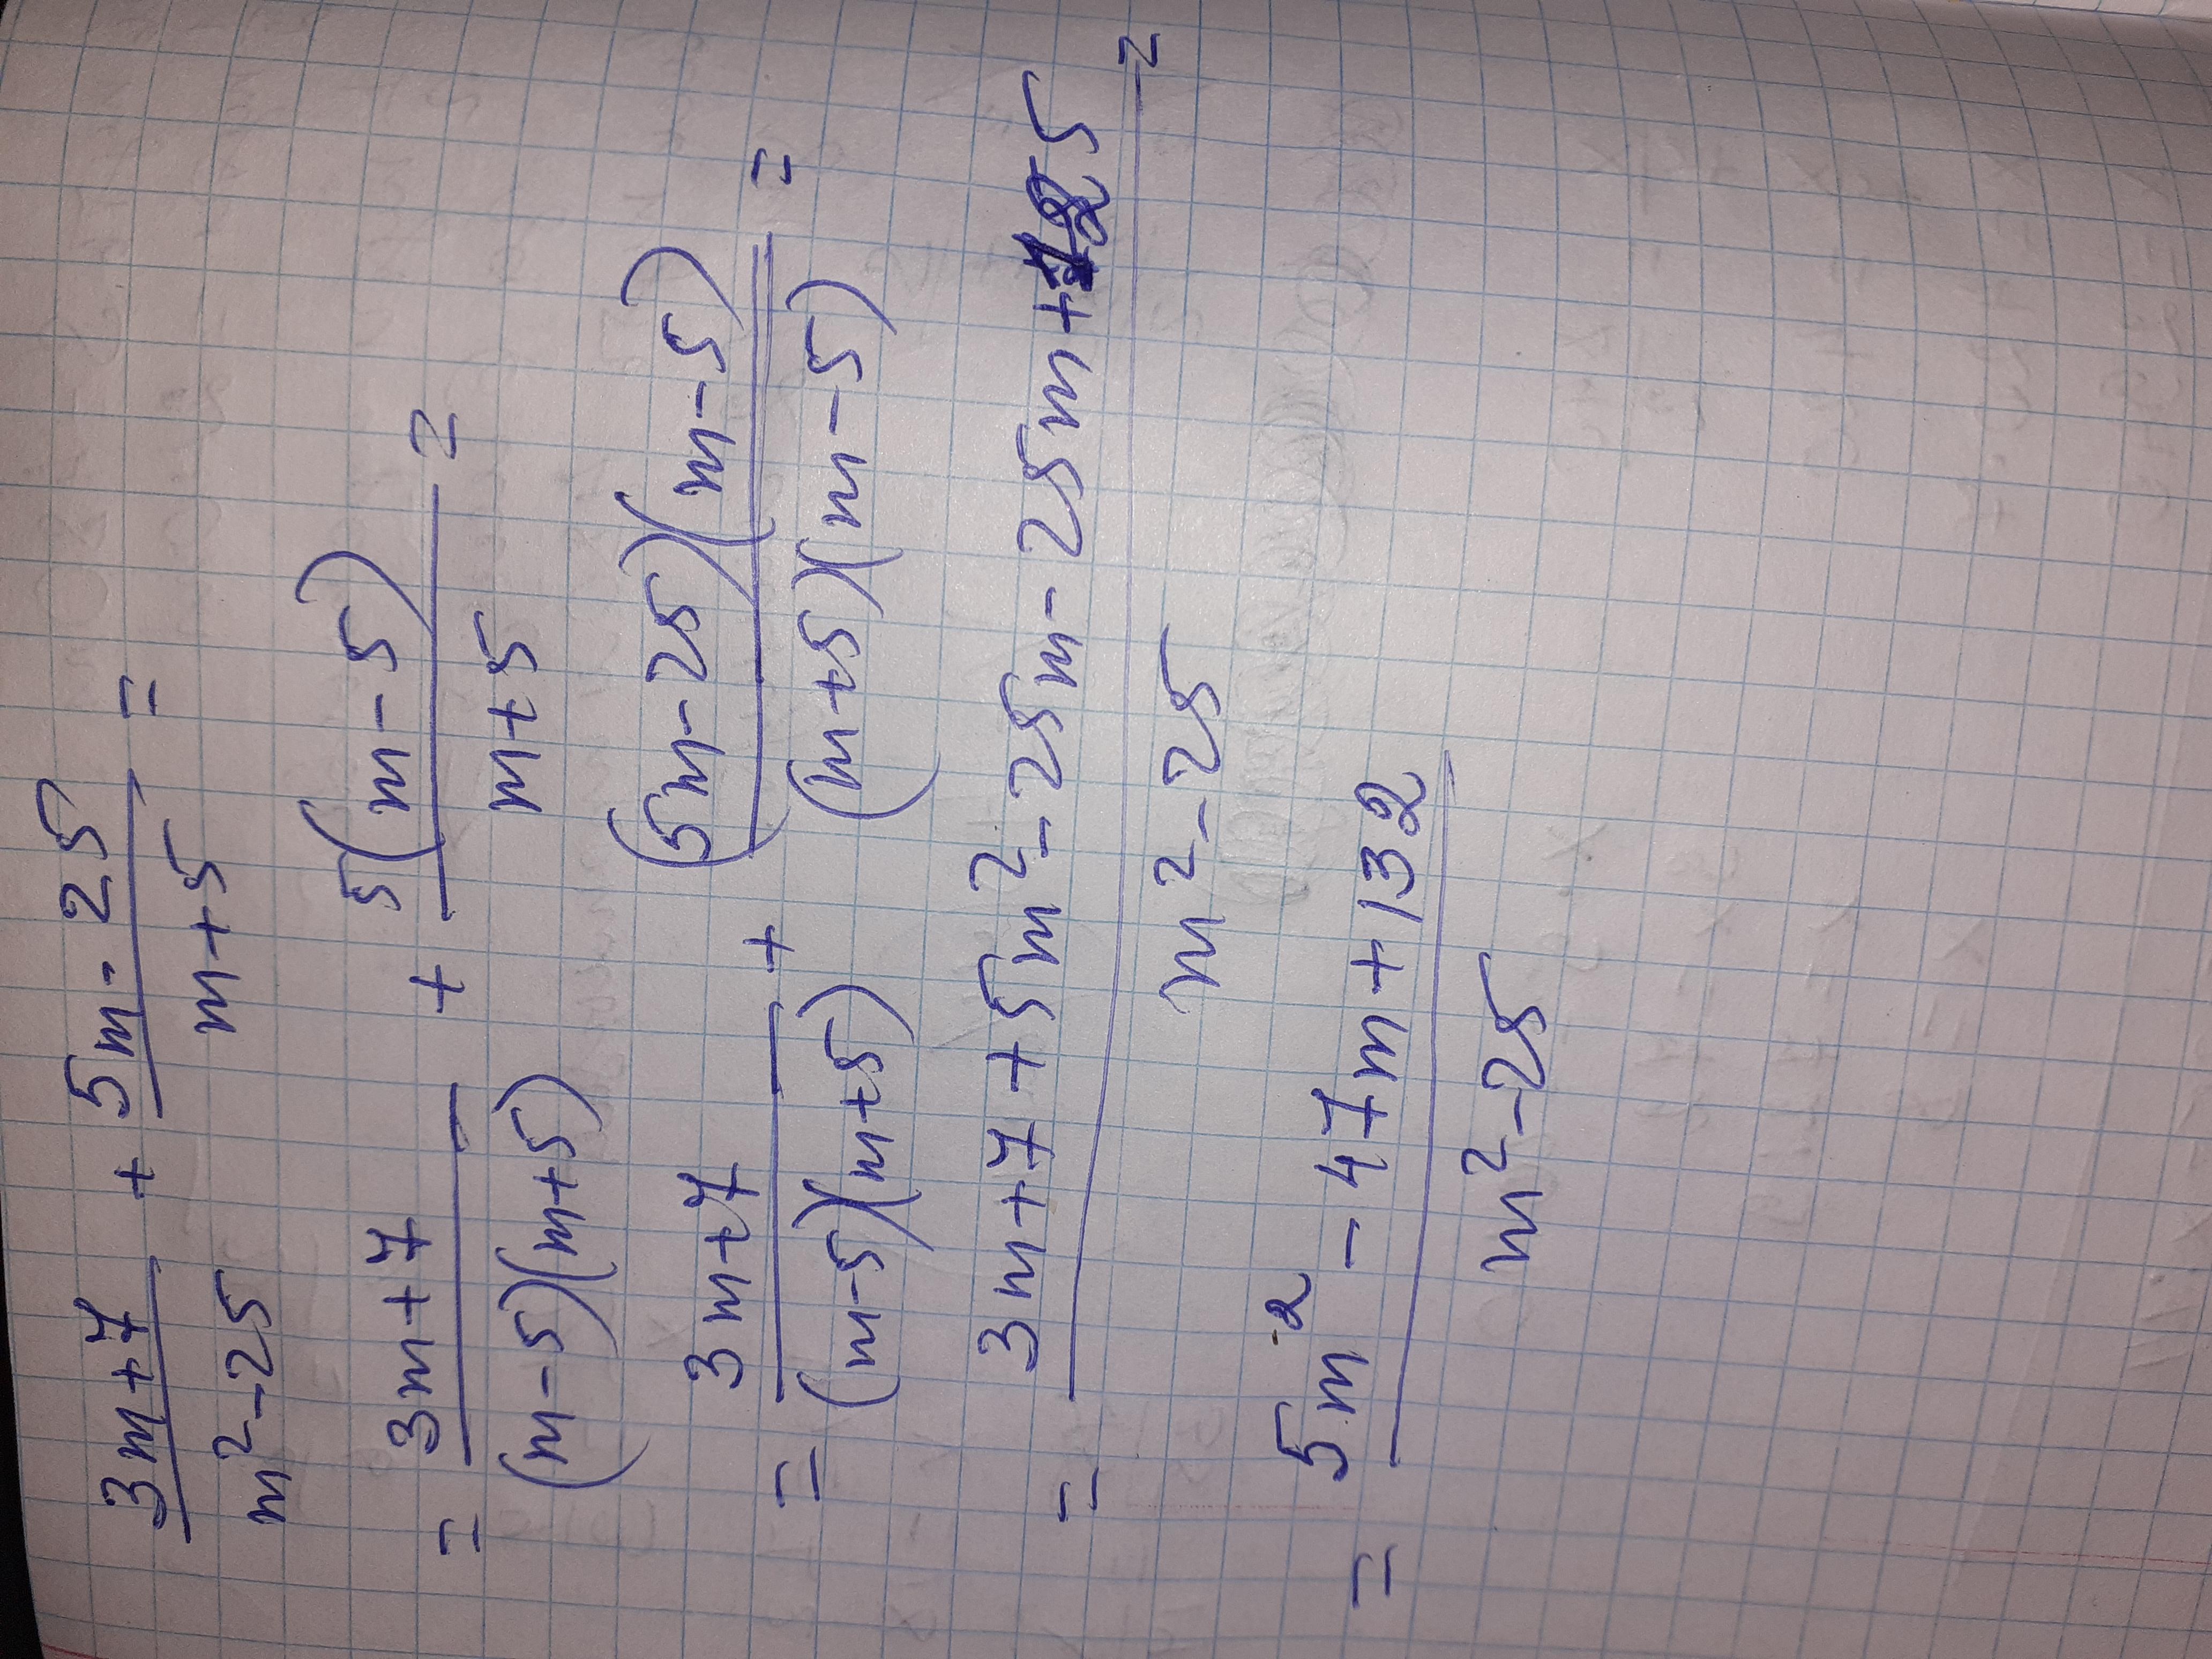 3m+7 + 5m-25 =
m²-25 m+5
= 3m+7 + 5(m-5) =
(m-5)(m+5) m+5
= 3m+7 + (5m-25)(m-5) =
(m-5)(m+5) (m+5)(m-5)
= 3m+7+5m²-25m-25m+125 =
m²-25
= 5m²-47m+132
m²-25